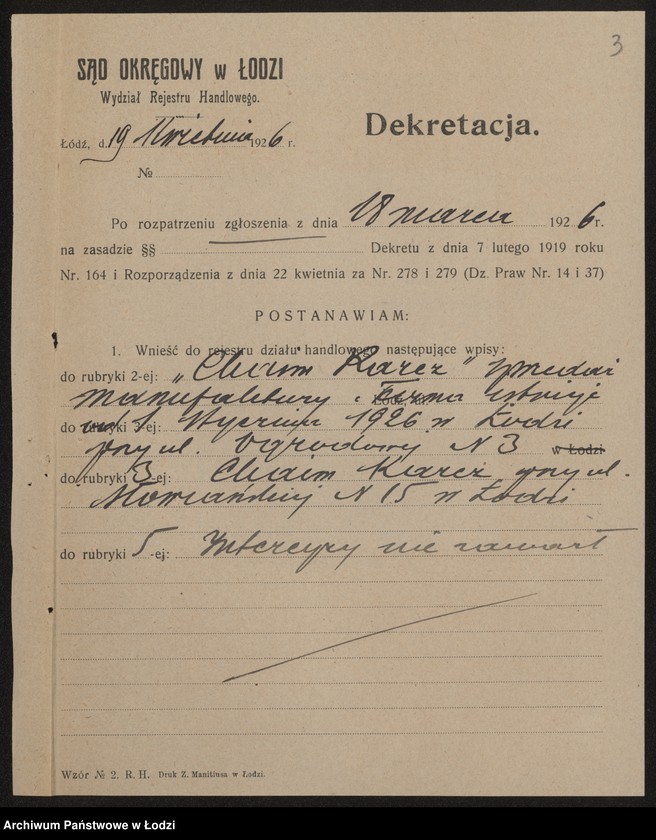 3
SĄD OKRĘGOWY w ŁODZI
Wydział Rejestru Handlowego.
Łódź, d. 19 Kwietnia 1926 r.
№
Dekretacja.
Po rozpatrzeniu zgłoszenia z dnia 18 marca 1926 r.
na zasadzie §§ Dekretu z dnia 7 lutego 1919 roku
Nr. 164 i Rozporządzenia z dnia 22 kwietnia za Nr. 278 i 279 (Dz. Praw Nr. 14 i 37)
POSTANAWIAM:
1. Wnieść do rejestru działu handlowego następujące wpisy:
do rubryki 2-ej: „Chaim Karcz" sprzedaż
manufaktury. Firma istnieje
do rubryki 3-ej: od 1 Stycznia 1926 w Łodzi
przy ul. Ogrodowej N 3 w Łodzi
do rubryki 3-ej: Chaim Karcz przy ul.
N 15 w Łodzi
do rubryki 5-ej: Intercyzy nie zawarł
Wzór № 2. R. H. Druk Z. Manitiusa w Łodzi.
Archiwum Państwowe w Łodzi